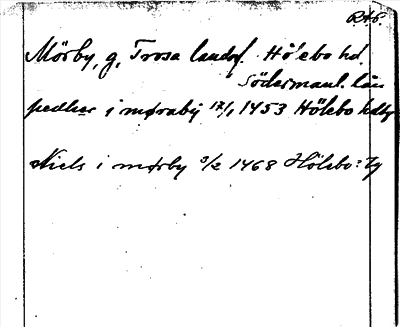 RAp.
Mörby, g, Trosa landsf. Hölebo hd.
Södermanl. län
pedhar i møraby 17/1 1453 Hölebo hdby
Niels i mørby 3/2 1468 Hölebo: